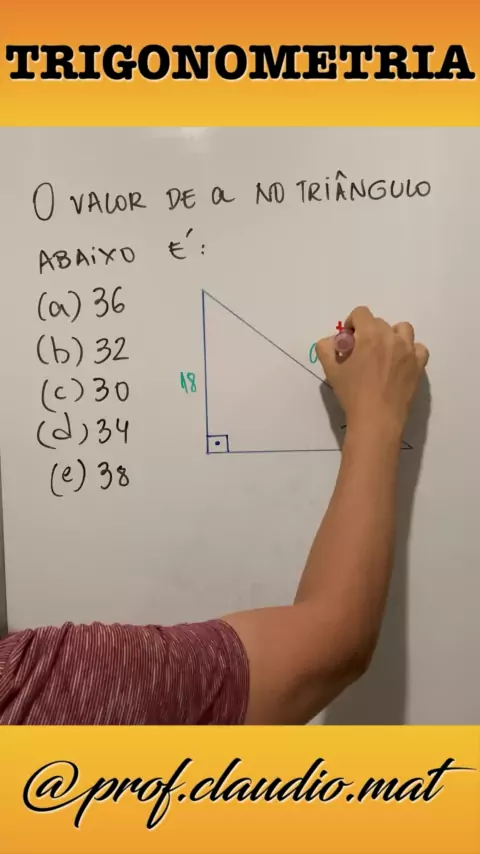 TRIGONOMETRIA
O VALOR DE a NO TRIÂNGULO
ABAIXO É:
(a) 36
(b) 32
(c) 30
(d) 34
(e) 38
18
a
@prof.claudio.mat